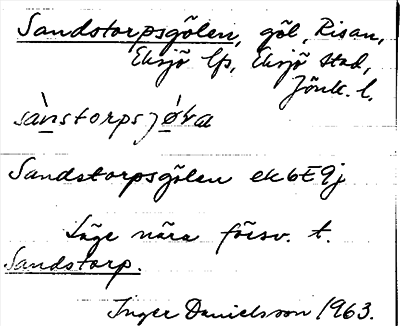 Sandstorpsgölen, göl, Risan,
Eksjö lfs, Eksjö stad,
Jönk. l.
sànstorpsjǿva
Sandstorpsgölen ek 6E9j
Läge nära försv. t.
Sandstorp.
Inger Danielsson 1963.